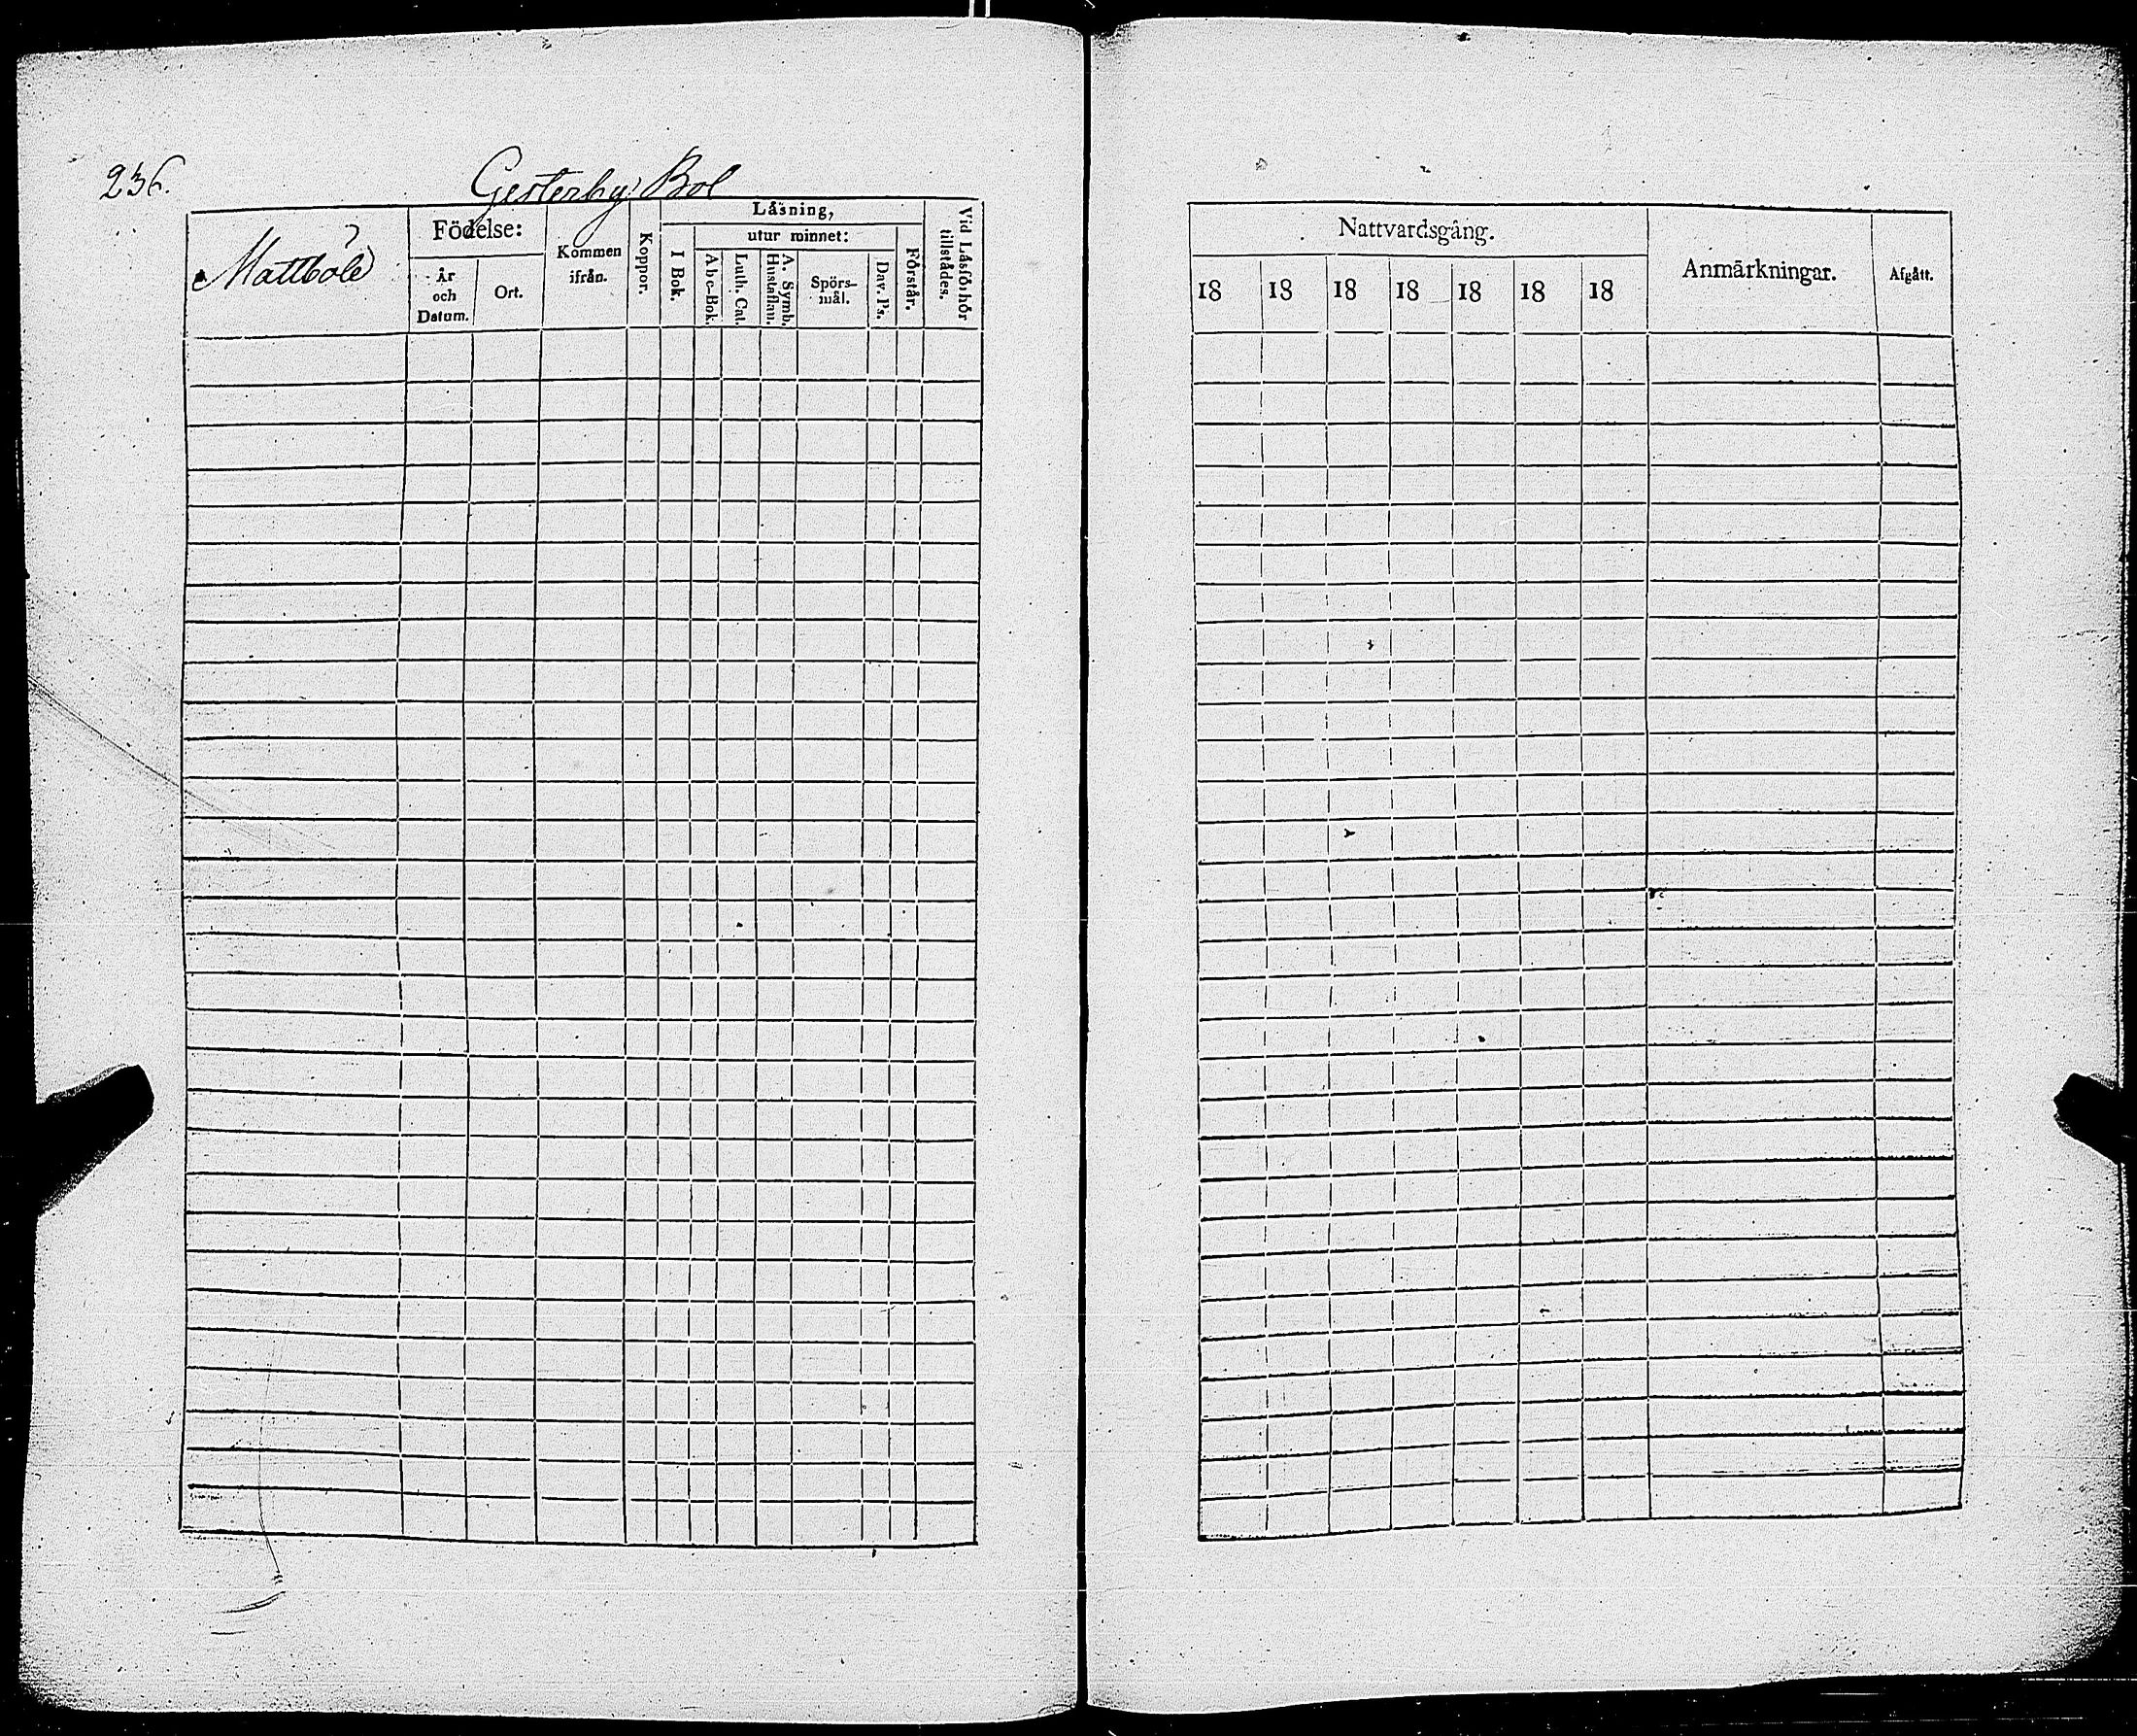 236.
Gesterby Bol
Mattböle
Födelse:
År
och
Datum.
Ort.
Kommen
ifrån.
Koppor.
Läsning,
I Bok.
utur minnet:
Abc-Bok.
Luth. Cat.
A. Symb.
Hustaflan.
Spörs-
mål.
Dav. Ps.
Förstår.
Vid Läsförhör
tillstädes.
Nattvardsgång.
18 18 18 18 18 18 18
Anmärkningar.
Afgått.